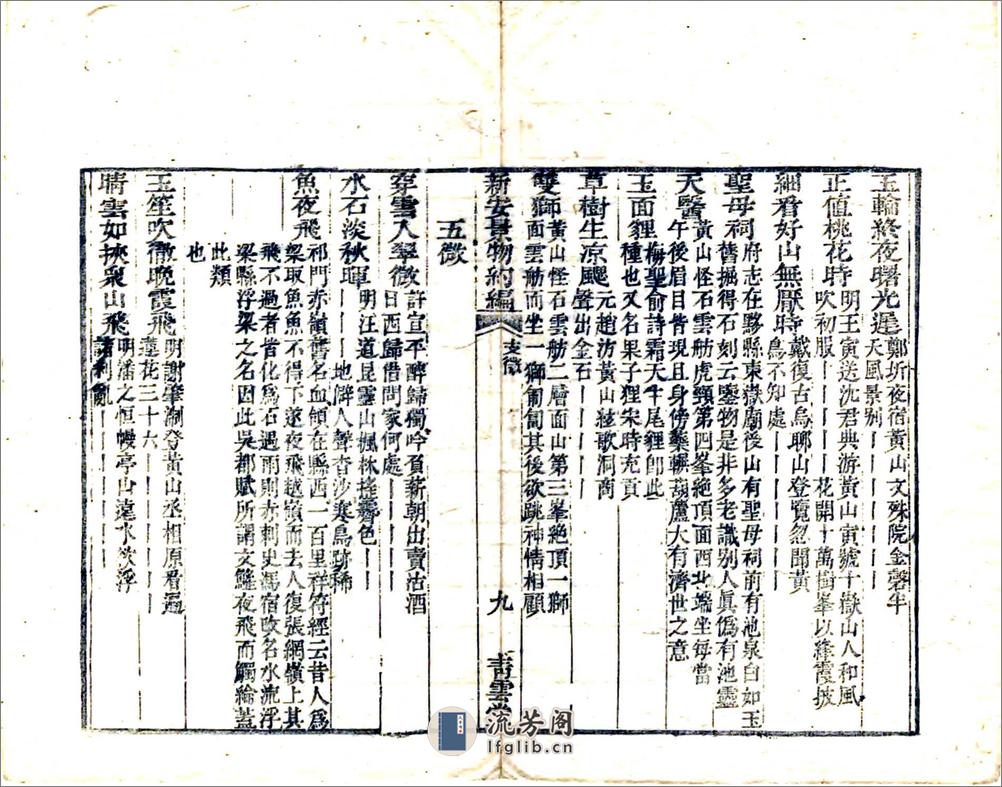 玉輪終夜曙光遲 鄭圻夜宿黃山文殊院金磬半
天風景別丨丨丨丨丨丨丨
正值桃花時 明王寅送沈君典游黃山寅號十嶽山人和風
吹初服丨丨丨丨丨花開十萬樹峯以絳霞披
細看好山無厭時 戴復古烏聊山登覽忽聞黃
鳥不知處丨丨丨丨丨丨丨
聖母祠 府志在黟縣東嶽廟後山有聖母祠前有池泉白如玉
舊掘得石刻云鑒物是非多老識別人眞僞有池靈
天醫 黃山怪石雲舫虎頸第四峯絶頂面西北端坐每當
午後眉目皆現且身傍擊轆葫蘆大有濟世之意
玉面貍 梅聖俞詩霜天牛尾貍卽此
種也又名果子狸宋時充貢
草樹生凉颸 元趙汸黃山絃歌洞商
聲出金石丨丨丨丨丨
雙獅 黃山怪石雲舫二層面山第三峯絶頂一獅
面雲舫而坐一獅匍匐其後欲跳神情相顧
新安景物約編 支微 九 青雲堂
五微
穿雲入翠微 許宣平醉歸獨吟負薪朝出賣沽酒
日西歸借問家何處丨丨丨丨丨
水石淡秋暉 明汪道昆靈山楓林搖靄色丨丨
丨丨丨地僻人聲杳沙寒鳥跡稀
魚夜飛 祁門赤嶺舊名血領在縣西一百里祥符經云昔人爲
梁取魚魚不得下遂夜飛越嶺而去人復張網嶺上其
飛不過者皆化爲石遇雨則赤刺史馮宿改名水流浮
梁縣浮梁之名因此吳都賦所謂文鰩夜飛而觸綸蓋
此類
也
玉笙吹徹晚霞飛 明謝肇淛登黃山丞相原看遍
蓮花三十六丨丨丨丨丨丨丨
晴雲如挾衆山飛 明潘之恒幔亭山遠水欲浮
諸刹亂丨丨丨丨丨丨丨
流芳阁
lfglib.cn